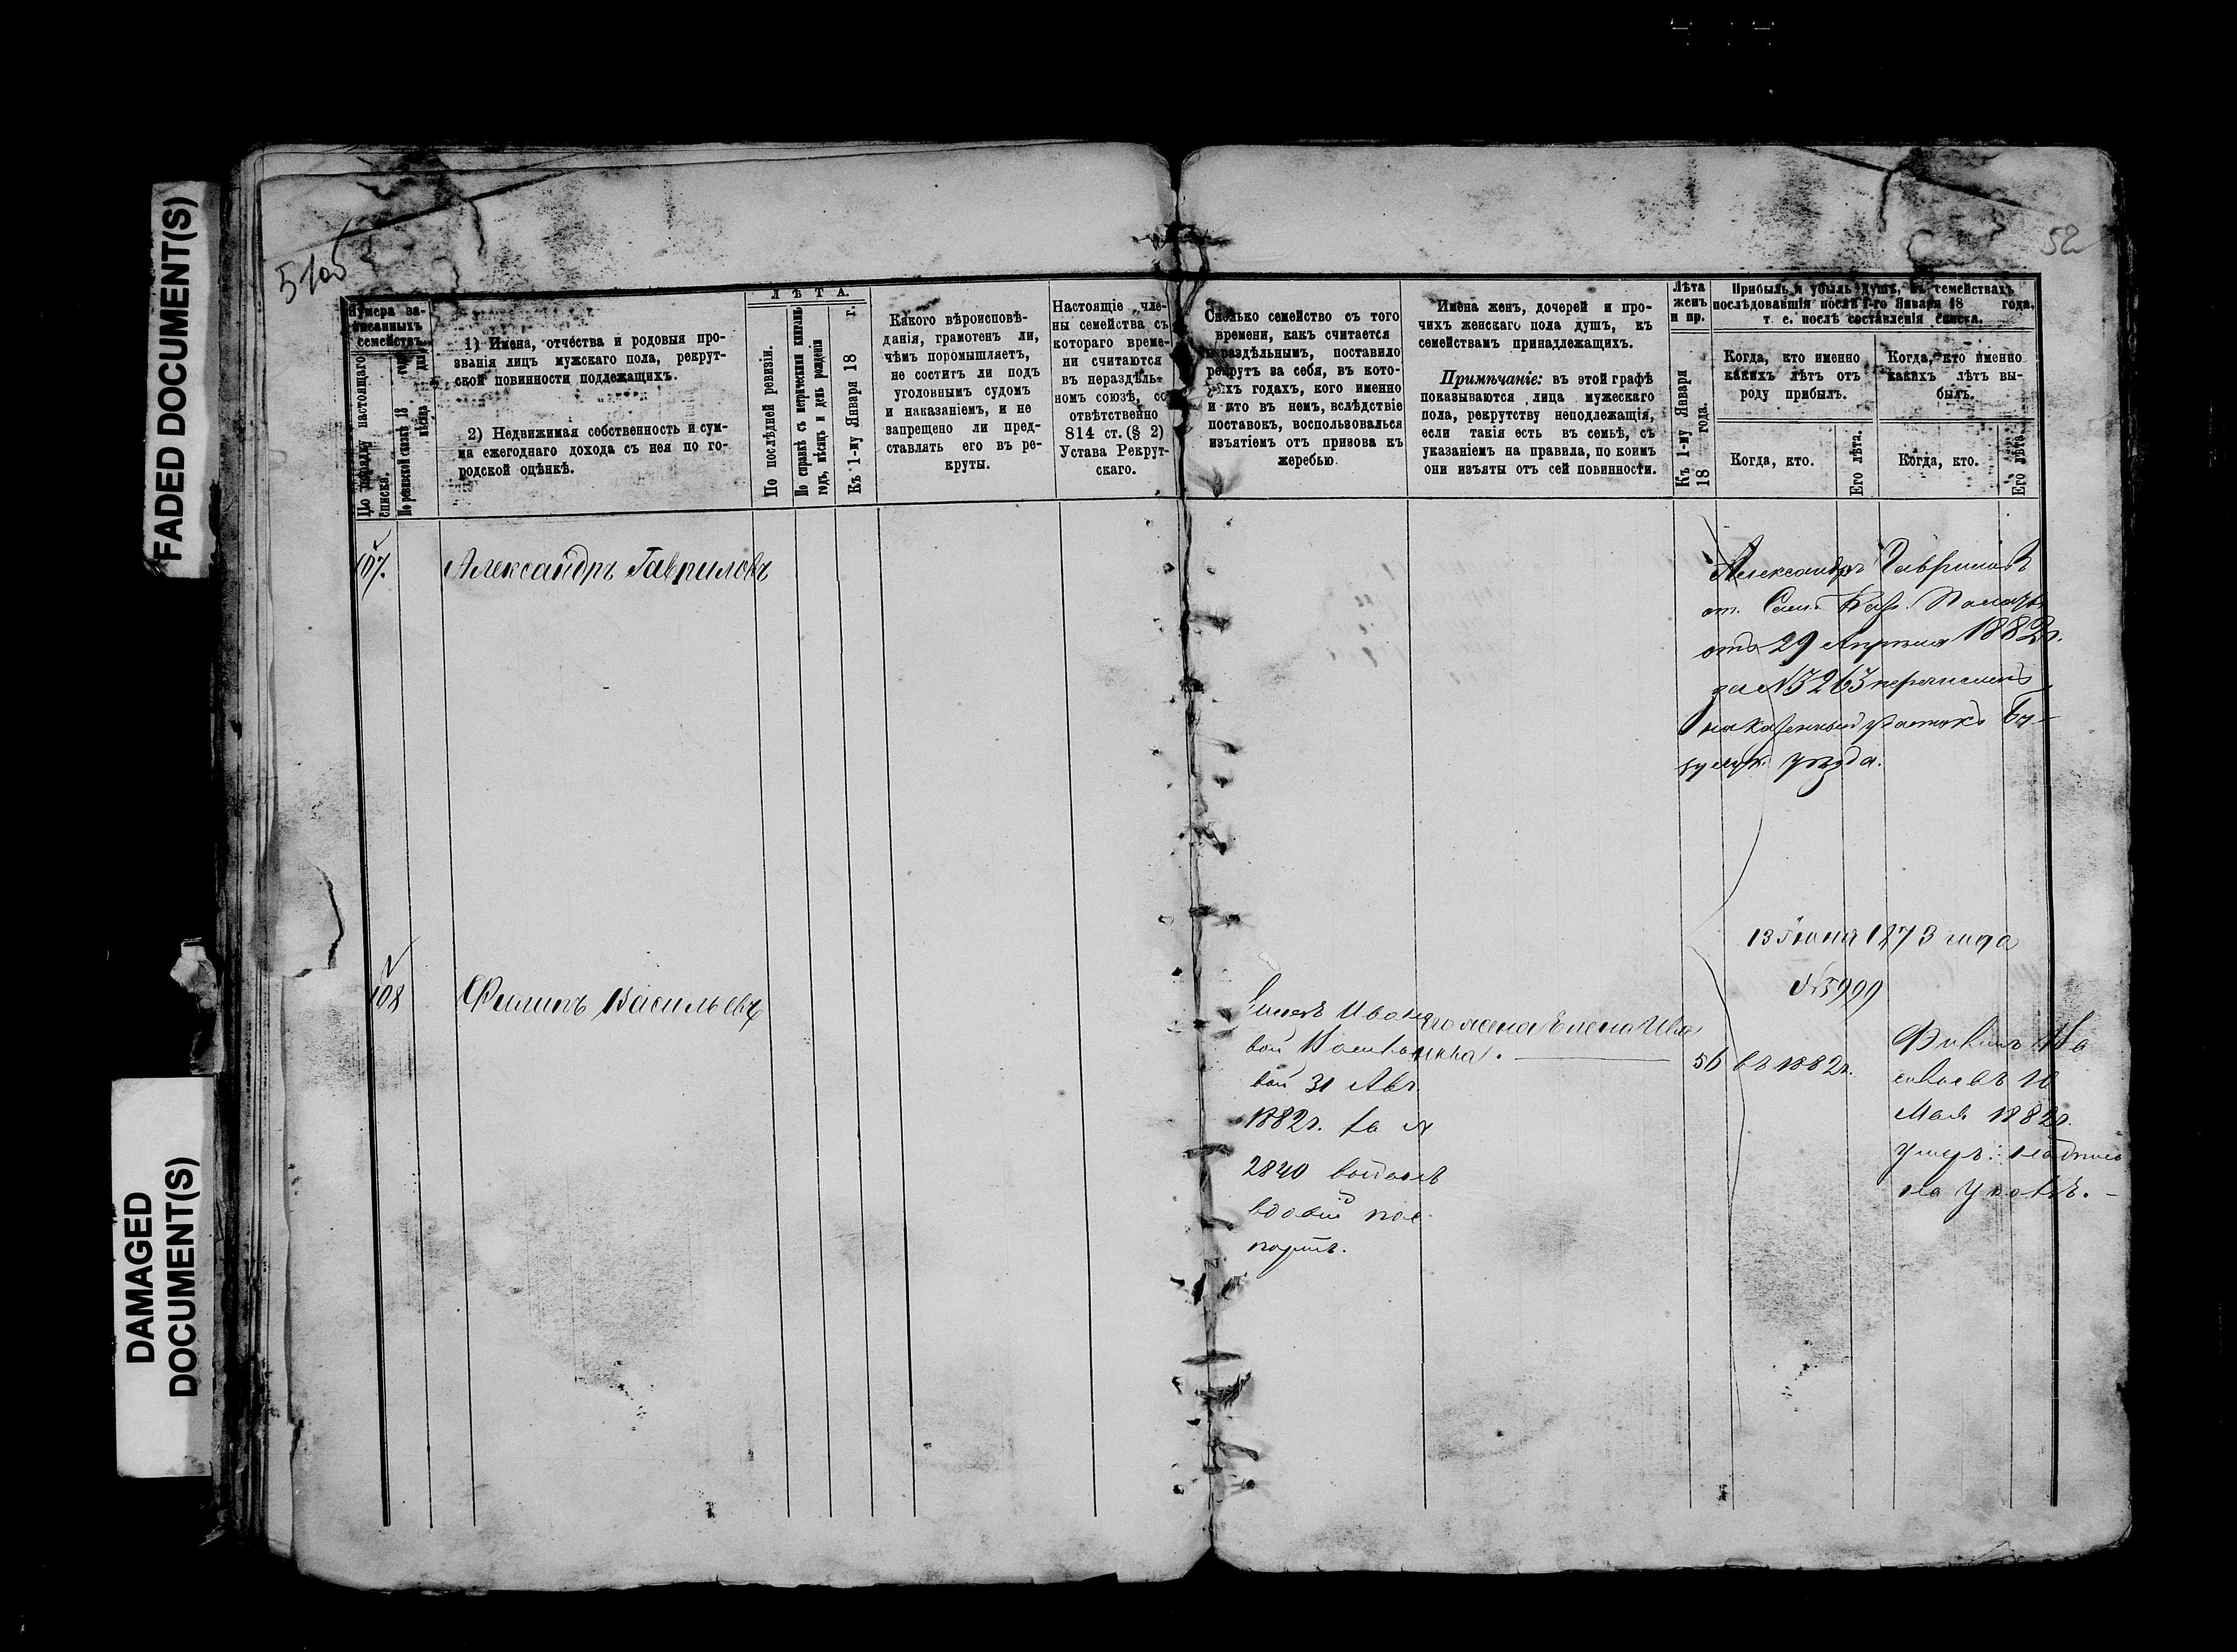 FADED DOCUMENT(S)
DAMAGED
DOCUMENT(S)
51об
52
Нумера за-
писанныхъ
семействъ.
По порядку настоящаго
списка.
По ревизской сказкѣ 18 года
мѣсяца дня
1) Имена, отчества и родовыя про-
званія лицъ мужскаго пола, рекрут-
ской повинности подлежащихъ.
2) Недвижимая собственность и сум-
ма ежегоднаго дохода съ нея по го-
родской оцѣнкѣ.
Л Ѣ Т А.
По послѣдней ревизіи.
По справкѣ съ метрическими книгами
годъ, мѣсяцъ и день рожденія
Къ 1-му Января 18 г.
Какого вѣроисповѣ-
данія, грамотенъ ли,
чѣмъ поромышляетъ,
не состигъ ли подъ
уголовнымъ судомъ
и наказаніемъ, и не
запрещено ли пред-
ставлять его въ ре-
круты.
Настоящіе чле-
ны семейства съ
котораго време-
ни считаются
въ нераздѣль-
номъ союзѣ, со-
отвѣтственно
814 ст. (§ 2)
Устава Рекрут-
скаго.
Сколько семейство съ того
времени, какъ считается
нераздѣльнымъ, поставило
рекрутъ за себя, въ кото-
рыхъ годахъ, кого именно
и кто въ немъ, вслѣдствіе
поставокъ, воспользовался
изъятіемъ отъ призова къ
жеребью.
Имена женъ, дочерей и про-
чихъ женскаго пола душъ, къ
семействамъ принадлежащихъ.
Примѣчаніе: въ этой графѣ
показываются лица мужескаго
пола, рекрутству неподлежащія,
если такія есть въ семьѣ, съ
указаніемъ на правила, по коимъ
они изъяты отъ сей повинности.
Лѣта
женъ
и пр.
Къ 1-му Января
18 года.
Прибыль и убыль душъ, въ семействахъ
послѣдовавшія послѣ 1-го Января 18 года,
т. е. послѣ составленія списка.
Когда, кто именно
какихъ лѣтъ отъ
роду прибылъ.
Когда, кто.
Его лѣта.
Когда, кто именно
какихъ лѣтъ вы-
былъ.
Когда, кто.
Его лѣта.
107.
Александръ Гавриловъ
Александръ Гавриловъ
от. Сам. Каз. Палаты
отъ 29 Апрѣля 1882г.
за № 3263 перечисленъ
на казенный участокъ Бу-
зулук. уѣзда.
13 Іюня 1873 года
№ 5999
108
Филипъ Васильевъ
Еленѣ Ивано-
вой Васильe-
вой 31 Авг.
1882г. за №
2840 выданъ
вдовій пас-
портъ.
его жена Елена Ива-
нова.
56
въ 1882г.
Филипъ Ва
сильевъ 10
Мая 1882г.
умеръ: